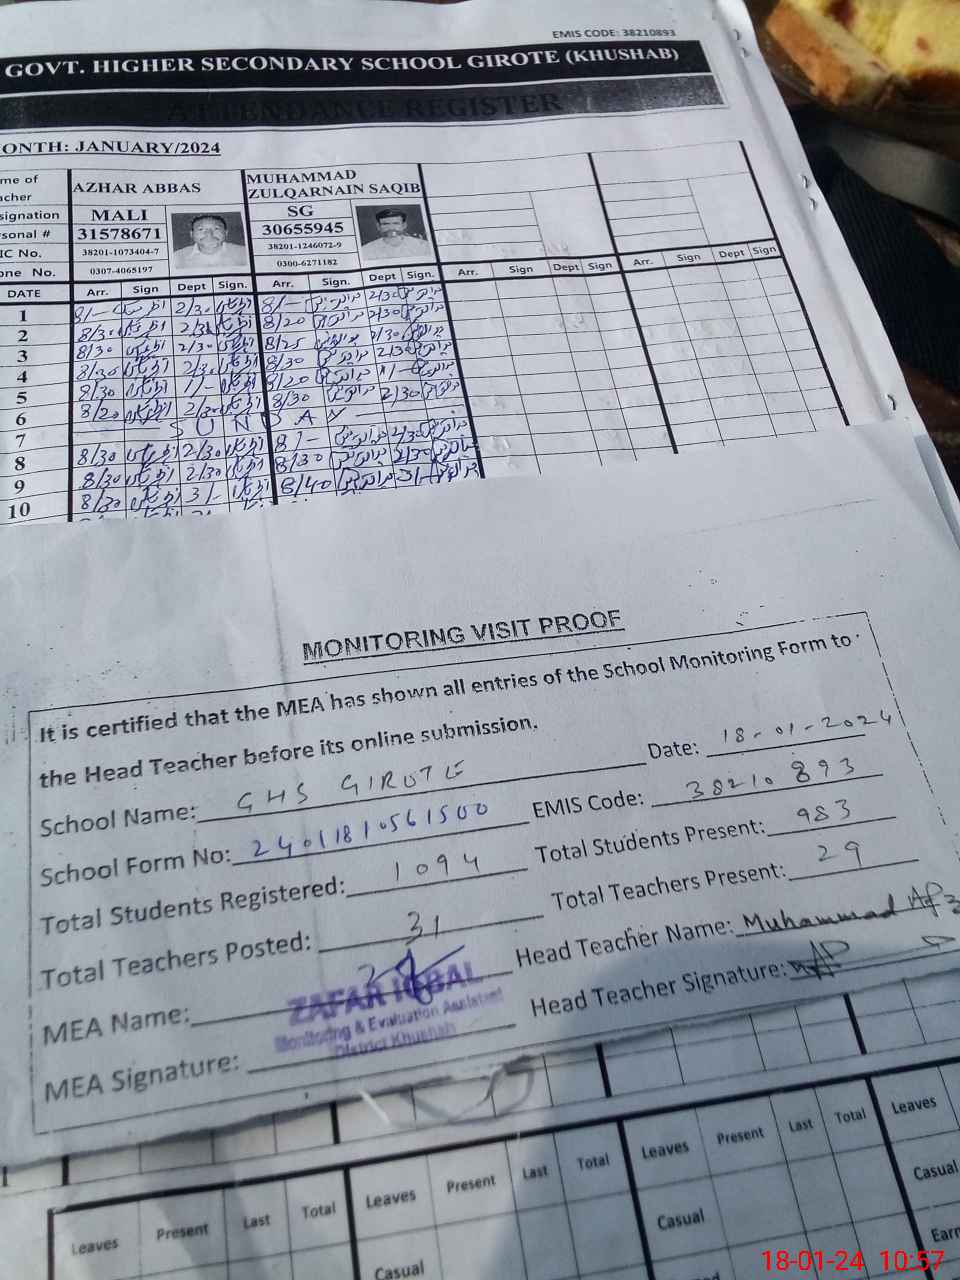 EMIS CODE: 38210893
GOVT. HIGHER SECONDARY SCHOOL GIROTE (KHUSHAB)
ATTENDANCE REGISTER
ONTH: JANUARY/2024
me of
acher
AZHAR ABBAS
MUHAMMAD
ZULQARNAIN SAQIB
signation MALI SG
sonal # 31578671 30655945
IC No. 38201-1073404-7 38201-1246072-9
one No. 0307-4065197 0300-6271182
DATE Arr. Sign Dept Sign. Arr. Sign. Dept Sign. Arr. Sign Dept Sign Arr. Sign Dept Sign
1 8/- 2/30 8/- 2/30
2 8/30 2/30 8/20 2/30
3 8/30 2/30 8/25 2/30
4 8/30 2/30 8/30 2/30
5 8/30 1/- 8/20 1/-
6 8/20 2/30 8/30 2/30
7 SUNDAY
8 8/30 2/30 8/- 2/30
9 8/30 2/30 8/30 2/30
10 8/30 3/- 8/40 3/-
MONITORING VISIT PROOF
It is certified that the MEA has shown all entries of the School Monitoring Form to
the Head Teacher before its online submission.
School Name: GHS GIROTE Date: 18-01-2024
School Form No: 24011810561500 EMIS Code: 38210893
Total Students Registered: 1094 Total Students Present: 983
Total Teachers Posted: 31 Total Teachers Present: 29
MEA Name: Head Teacher Name: Muhammad Afz
ZAFAR IQBAL
Monitoring & Evaluation Assistant
District Khushab
MEA Signature: Head Teacher Signature:
Leaves Present Last Total Leaves Present Last Total Leaves Present Last Total Leaves
Casual Casual Casual
Earn
18-01-24 10:57